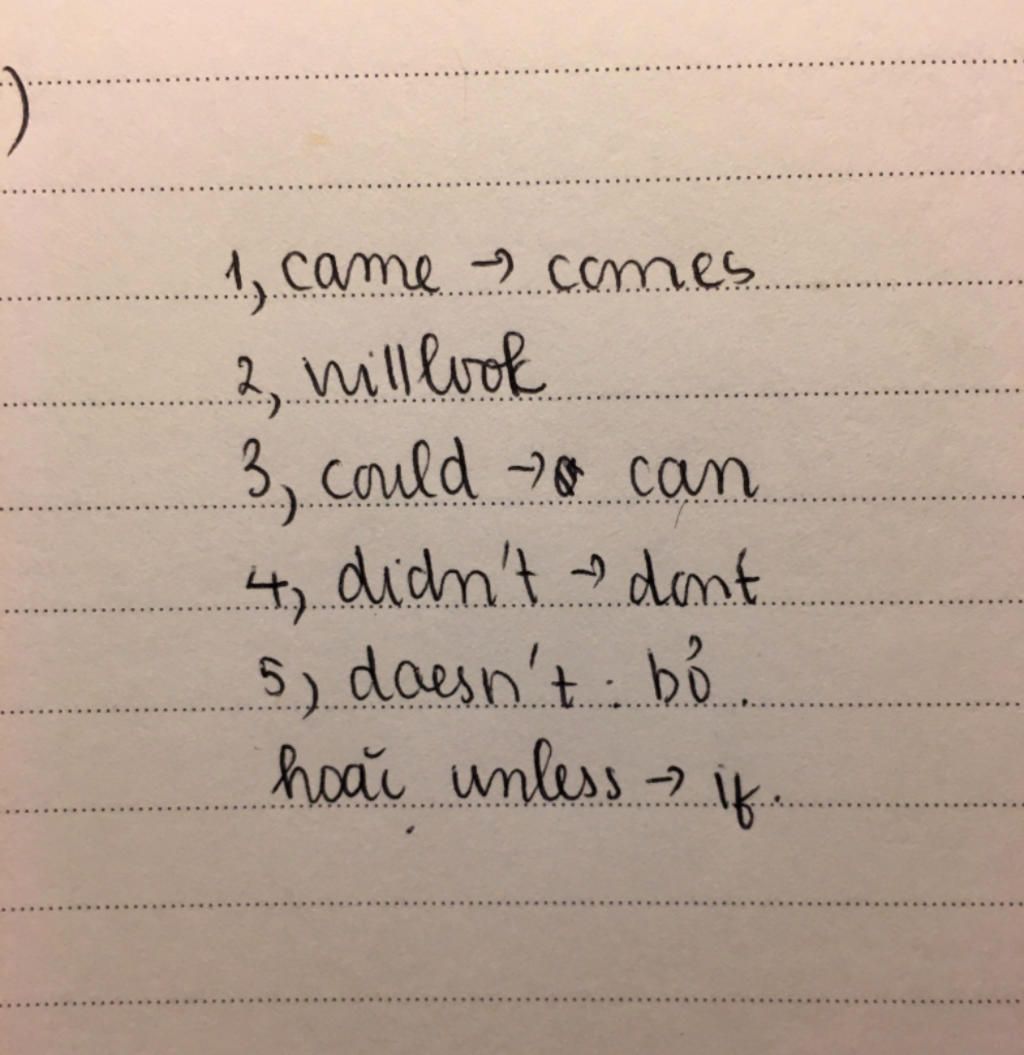 )
1, came → comes
2, will look
3, could → can
4, didn't → dont
5, doesn't : bỏ.
hoặc unless → if.